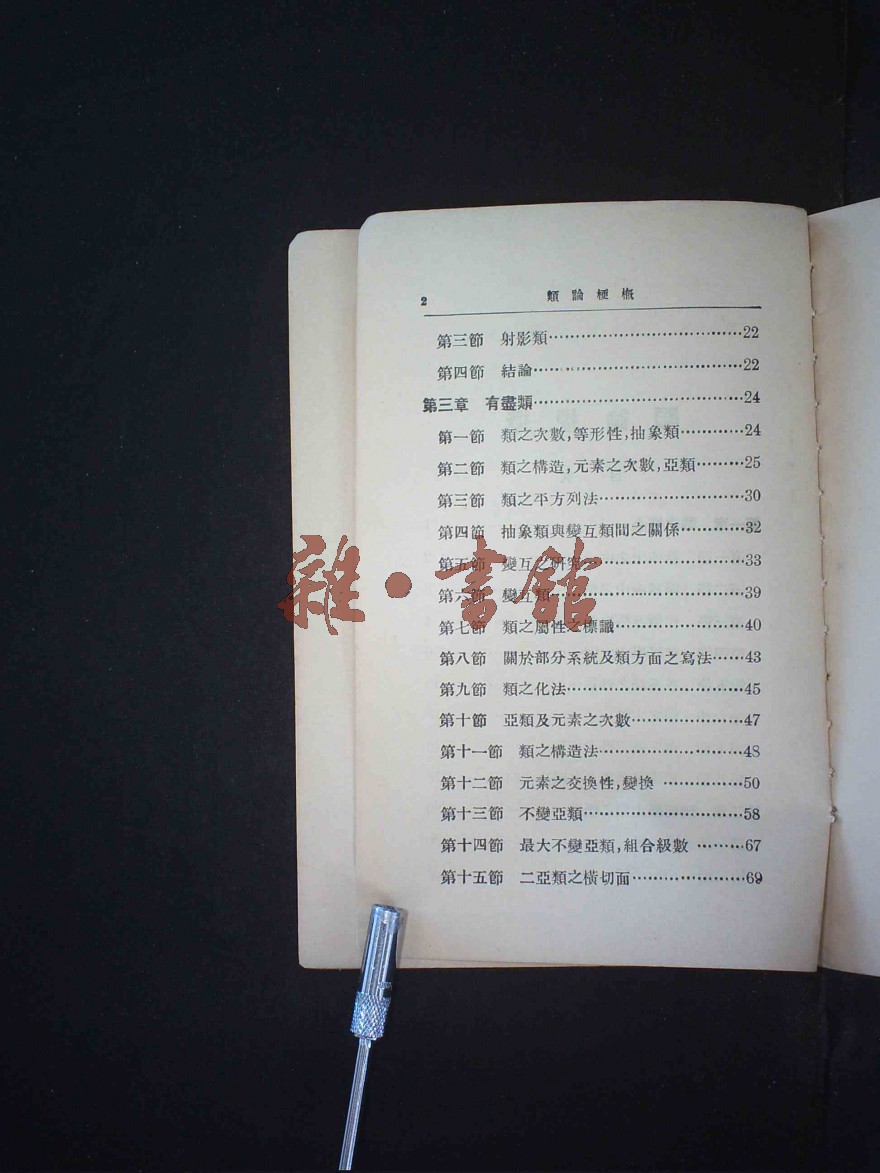 2 類論梗概
第三節 射影類……………………………22
第四節 結論……………………………22
第三章 有盡類……………………………24
第一節 類之次數,等形性,抽象類…………24
第二節 類之構造,元素之次數,亞類………25
第三節 類之平方列法…………………30
第四節 抽象類與變互類間之關係…………32
第五節 變互之研究……………………33
第六節 變互類……………………………39
第七節 類之屬性之標識…………………40
第八節 關於部分系統及類方面之寫法……43
第九節 類之化法……………………………45
第十節 亞類及元素之次數………………47
第十一節 類之構造法……………………48
第十二節 元素之交換性,變換 ……………50
第十三節 不變亞類……………………………58
第十四節 最大不變亞類,組合級數 ………67
第十五節 二亞類之橫切面…………………69
雜·書館